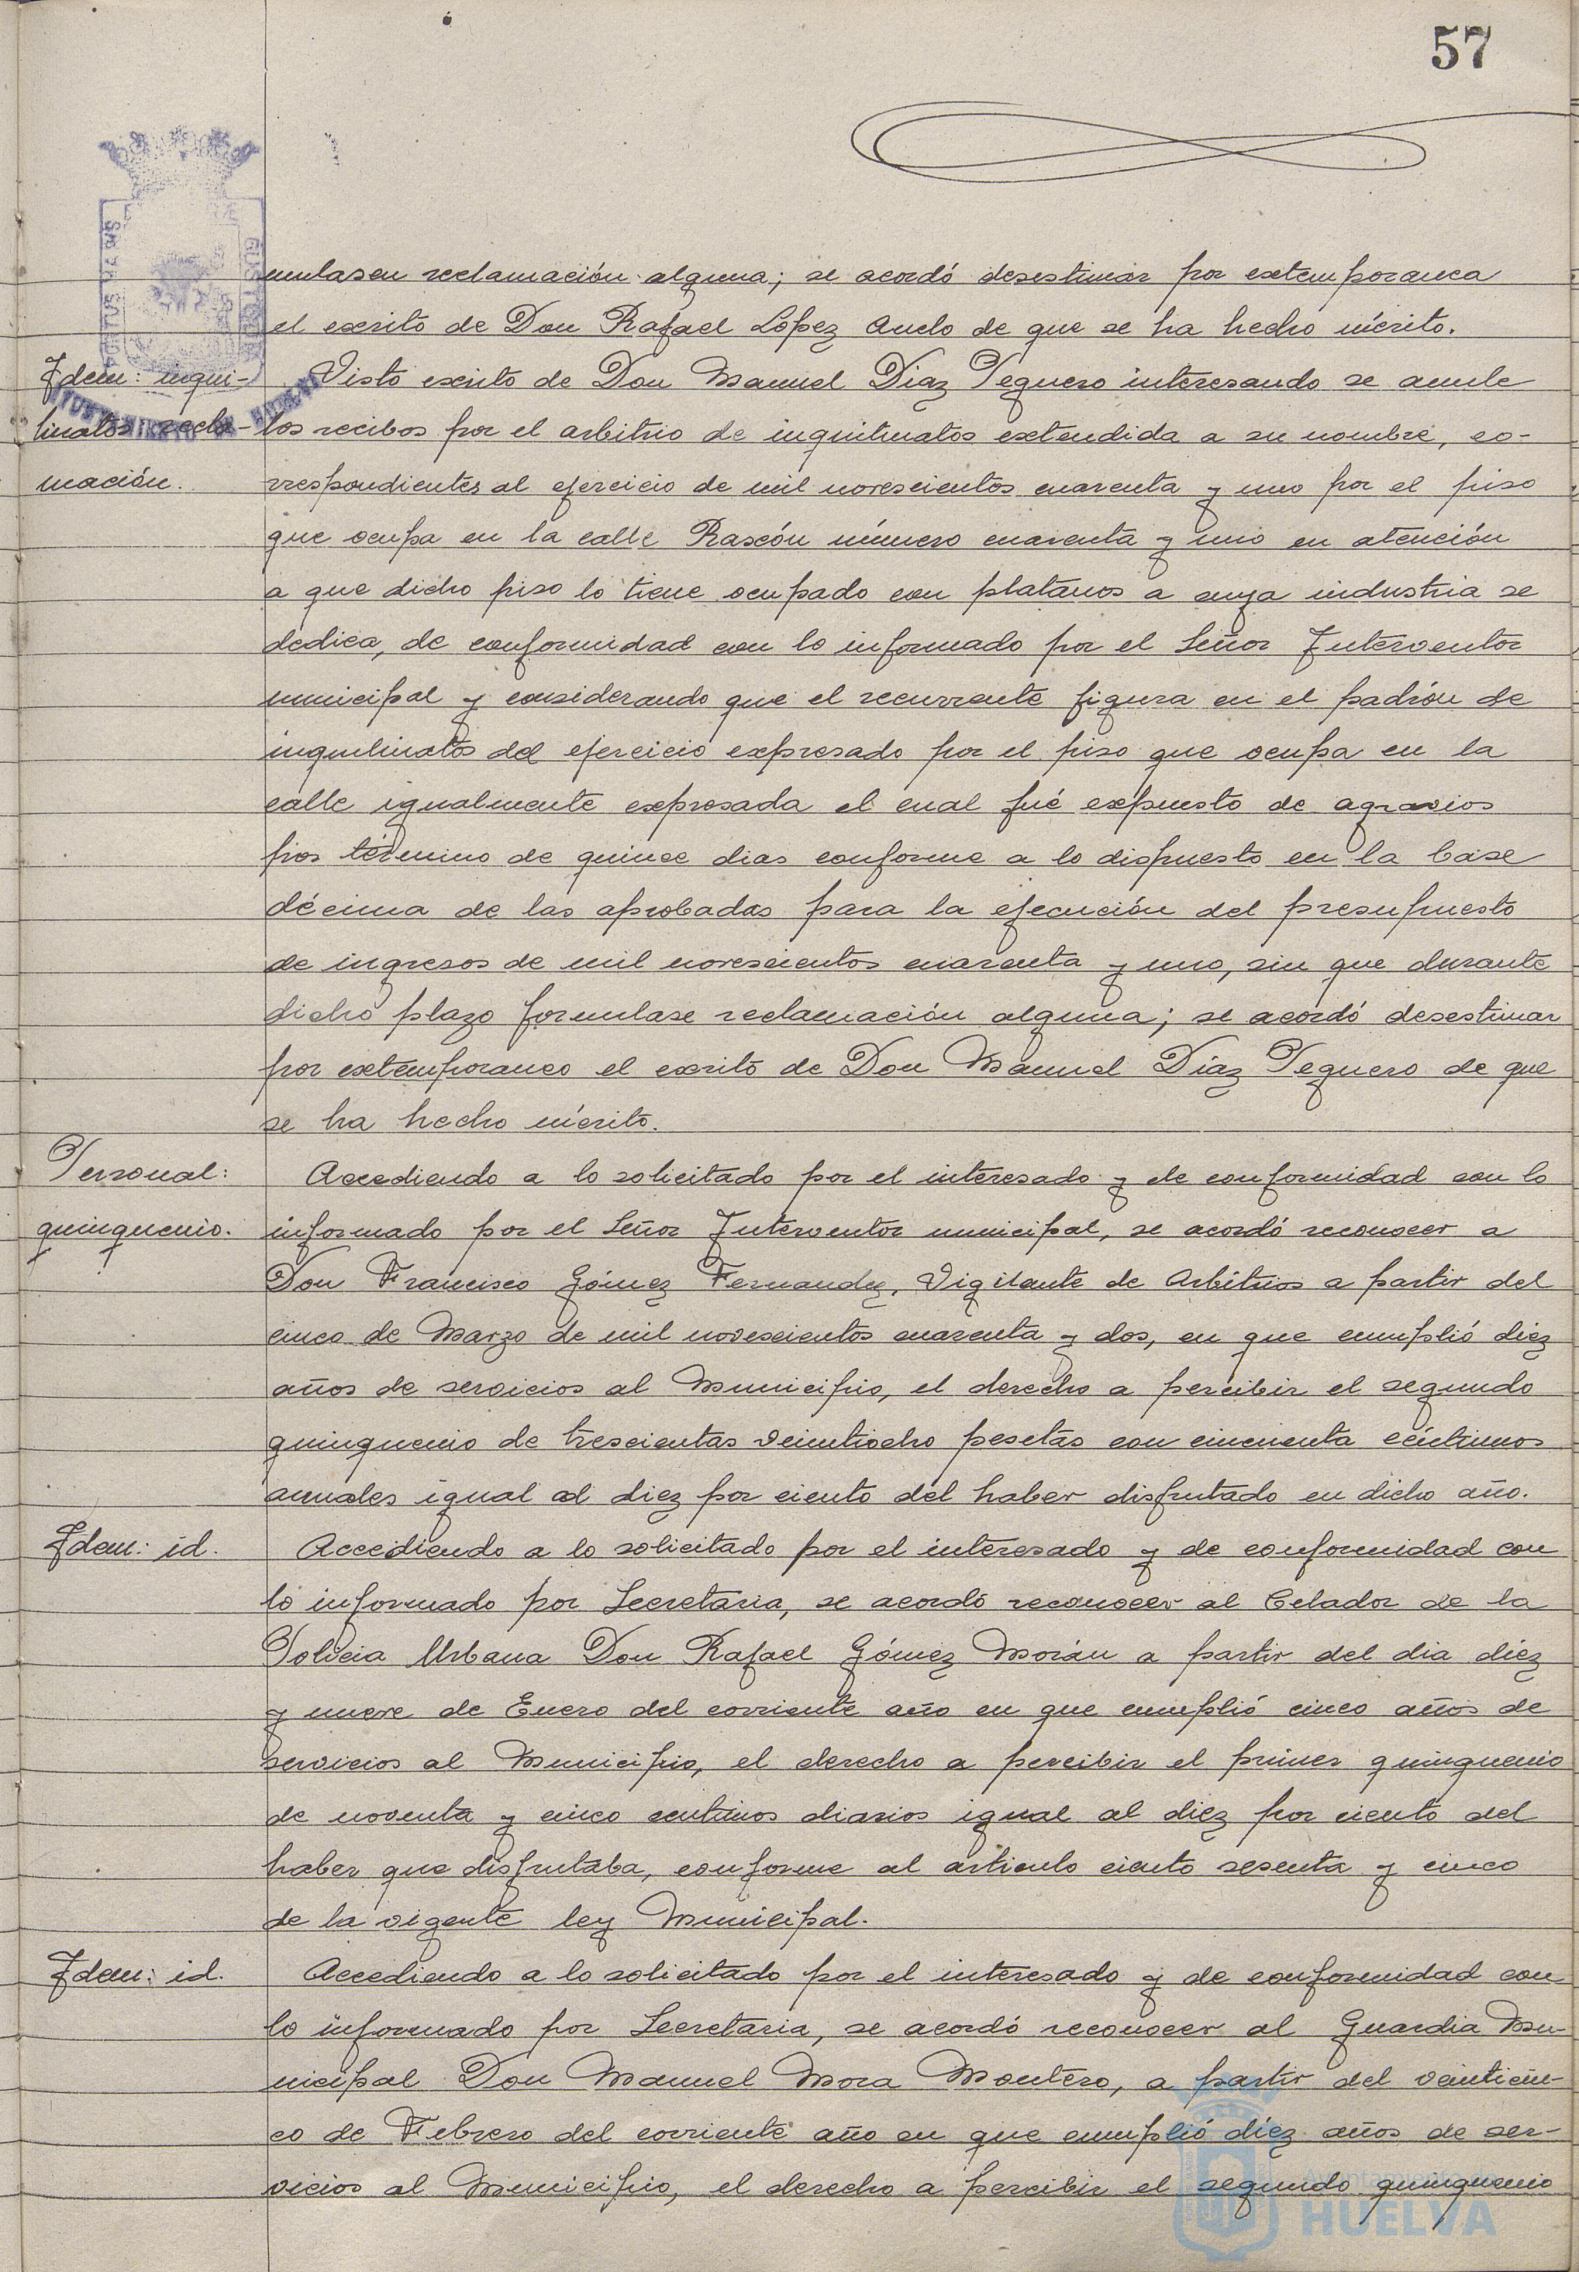 57
mulasen reclamación alguna; se acordó desestimar por extemporanea
el escrito de Don Rafael López Anelo de que se ha hecho mérito.
Idem: inqui-
linatos recla-
mación.
Visto escrito de Don Manuel Diaz Peguero interesando se anule
los recibos por el arbitrio de inquilinatos extendida a su nombre, co-
rrespondientes al ejercicio de mil novescientos cuarenta y uno por el piso
que ocupa en la calle Rascón número cuarenta y uno en atención
a que dicho piso lo tiene ocupado con platanos a cuya industria se
dedica, de conformidad con lo informado por el Señor Interventor
municipal y considerando que el recurrente figura en el padrón de
inquilinatos del ejercicio expresado por el piso que ocupa en la
calle igualmente expresada el cual fué expuesto de agravios
por término de quince dias conforme a lo dispuesto en la base
décima de las aprobadas para la ejecución del presupuesto
de ingresos de mil novescientos cuarenta y uno, sin que durante
dicho plazo formulase reclamación alguna; se acordó desestimar
por extemporaneo el escrito de Don Manuel Díaz Peguero de que
se ha hecho mérito.
Personal:
quinquenio.
Accediendo a lo solicitado por el interesado y de conformidad con lo
informado por el Señor Interventor municipal, se acordó reconocer a
Don Francisco Gómez Fernandez, Vigilante de Arbitrios a partir del
cinco de Marzo de mil novescientos cuarenta y dos, en que cumplió diez
años de servicios al Municipio, el derecho a percibir el segundo
quinquenio de trescientas veintiocho pesetas con cincuenta céntimos
anuales igual al diez por ciento del haber disfrutado en dicho año.
Idem: id.
Accediendo a lo solicitado por el interesado y de conformidad con
lo informado por Secretaria, se acordó reconocer al Celador de la
Policia Urbana Don Rafael Gómez Morán a partir del dia diez
y nueve de Enero del corriente año en que cumplió cinco años de
servicios al Municipio, el derecho a percibir el primer quinquenio
de noventa y cinco centimos diarios igual al diez por ciento del
haber que disfrutaba, conforme al articulo ciento sesenta y cinco
de la vigente ley Municipal.
Idem: id.
Accediendo a lo solicitado por el interesado y de conformidad con
lo informado por Secretaria, se acordó reconocer al Guardia Mu-
nicipal Don Manuel Mora Montero, a partir del veinticin-
co de Febrero del corriente año en que cumplió diez años de ser-
vicios al Municipio, el derecho a percibir el segundo quinquenio
HUELVA